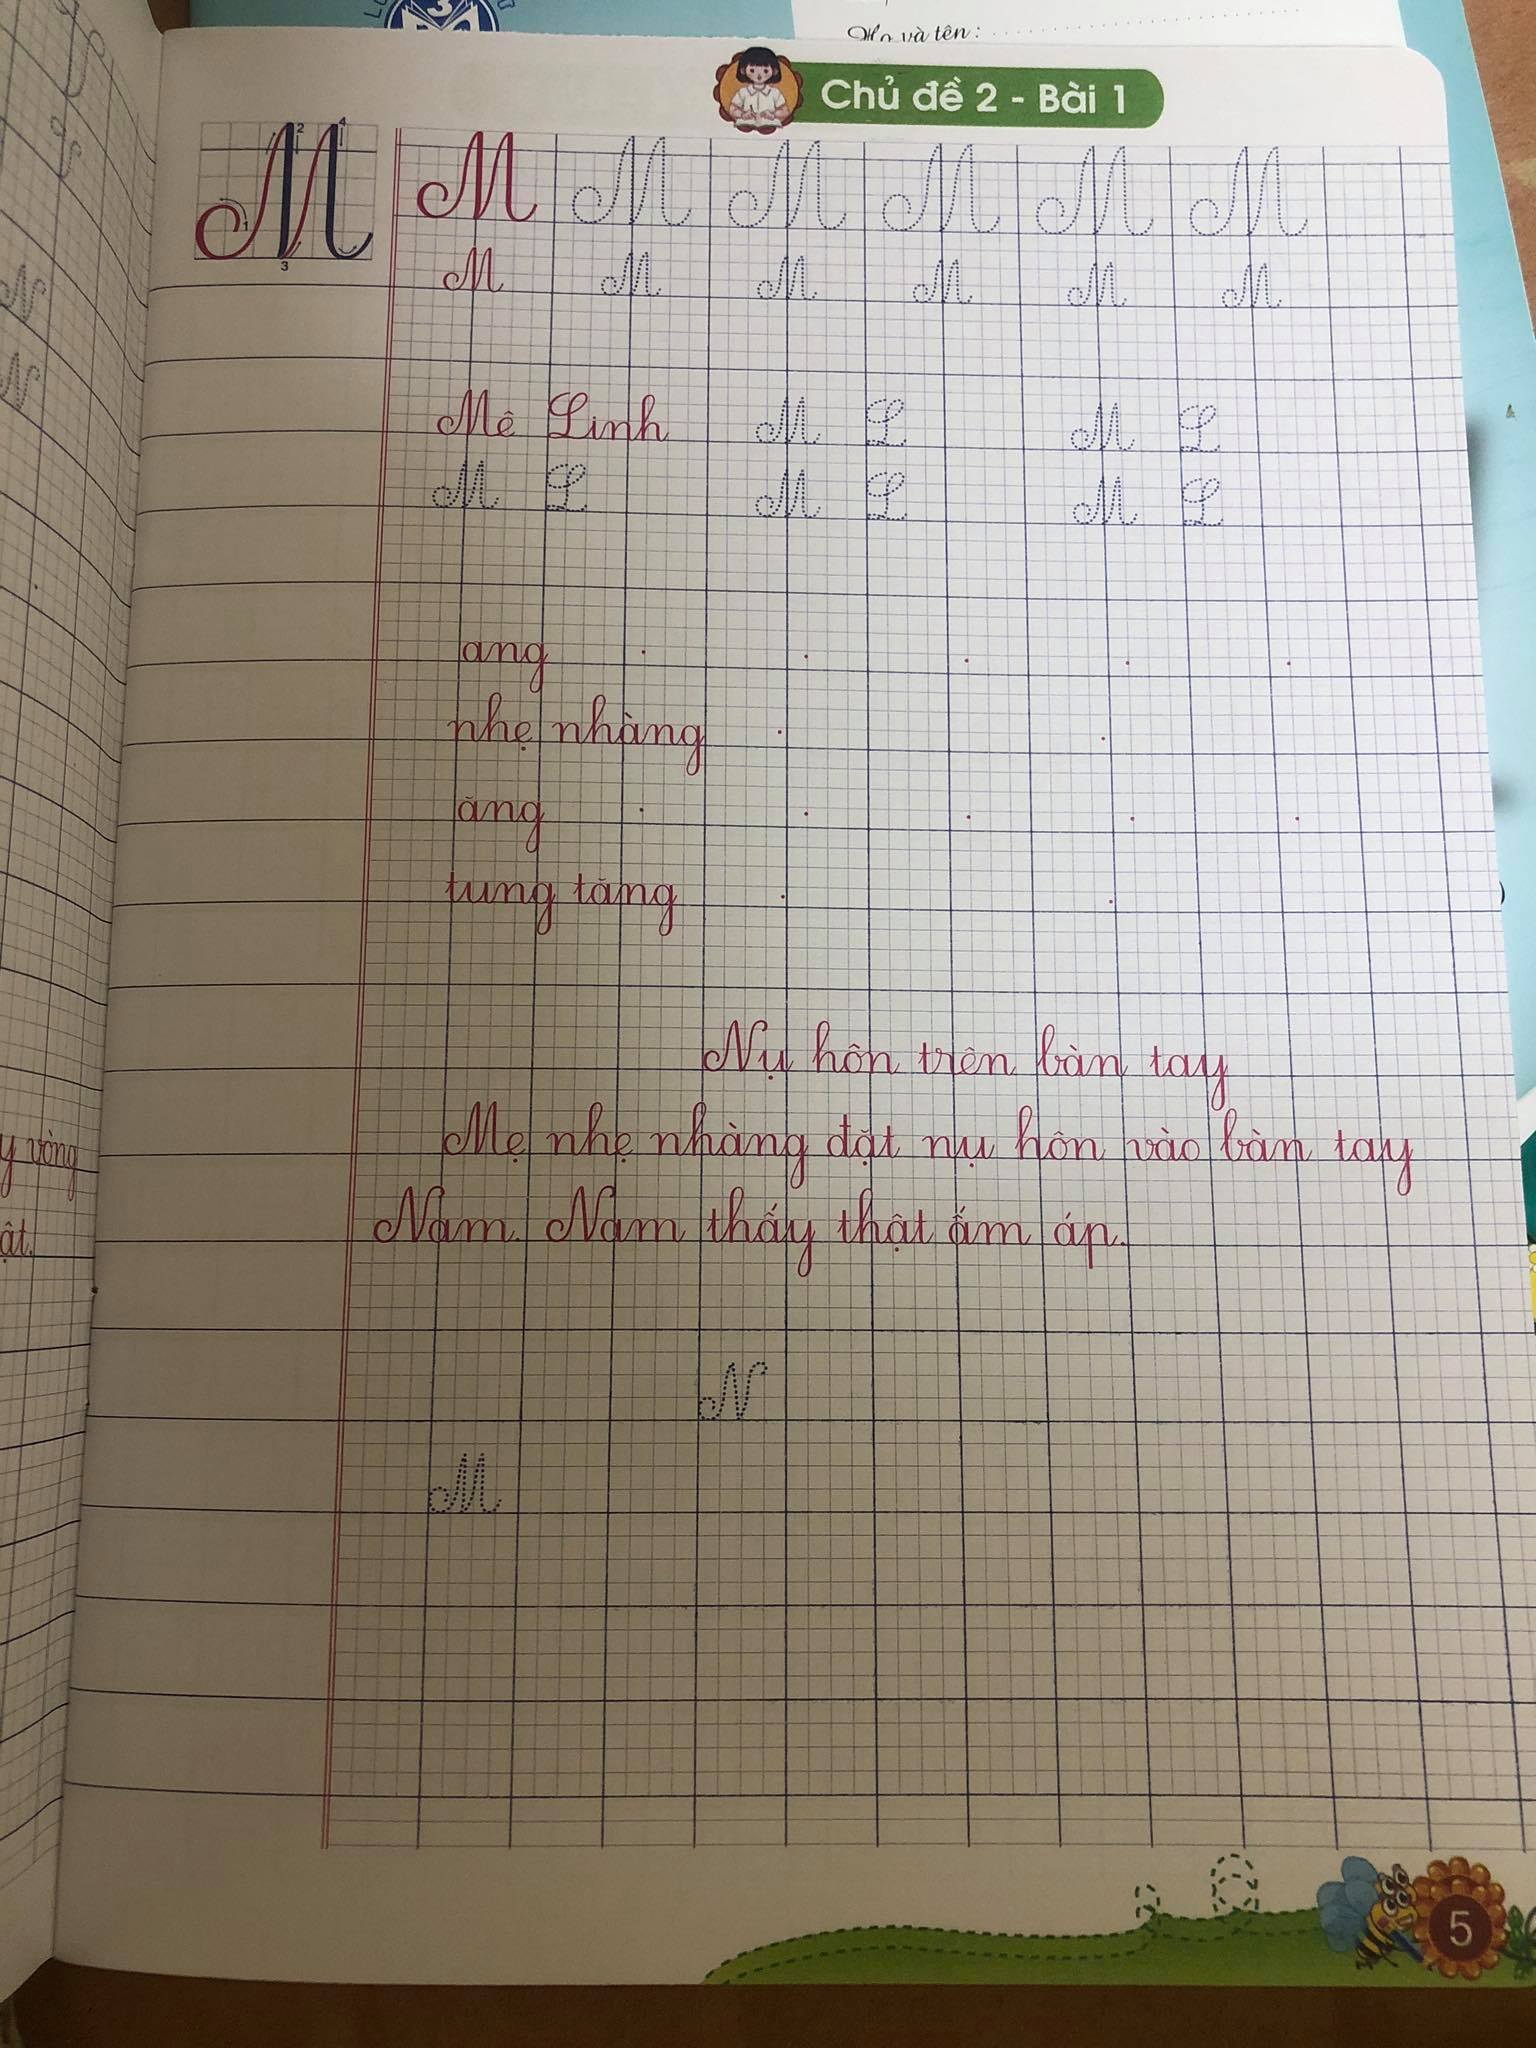 Họ và tên:
Chủ đề 2 - Bài 1
M M M M M M M
M M M M M M
Mê Linh M L M L
M L M L M L
ang
nhẹ nhàng
ăng
tung tăng
Nụ hôn trên bàn tay
Mẹ nhẹ nhàng đặt nụ hôn vào bàn tay
Nam. Nam thấy thật ấm áp.
N
M
5
N
N
y vòng
ật.